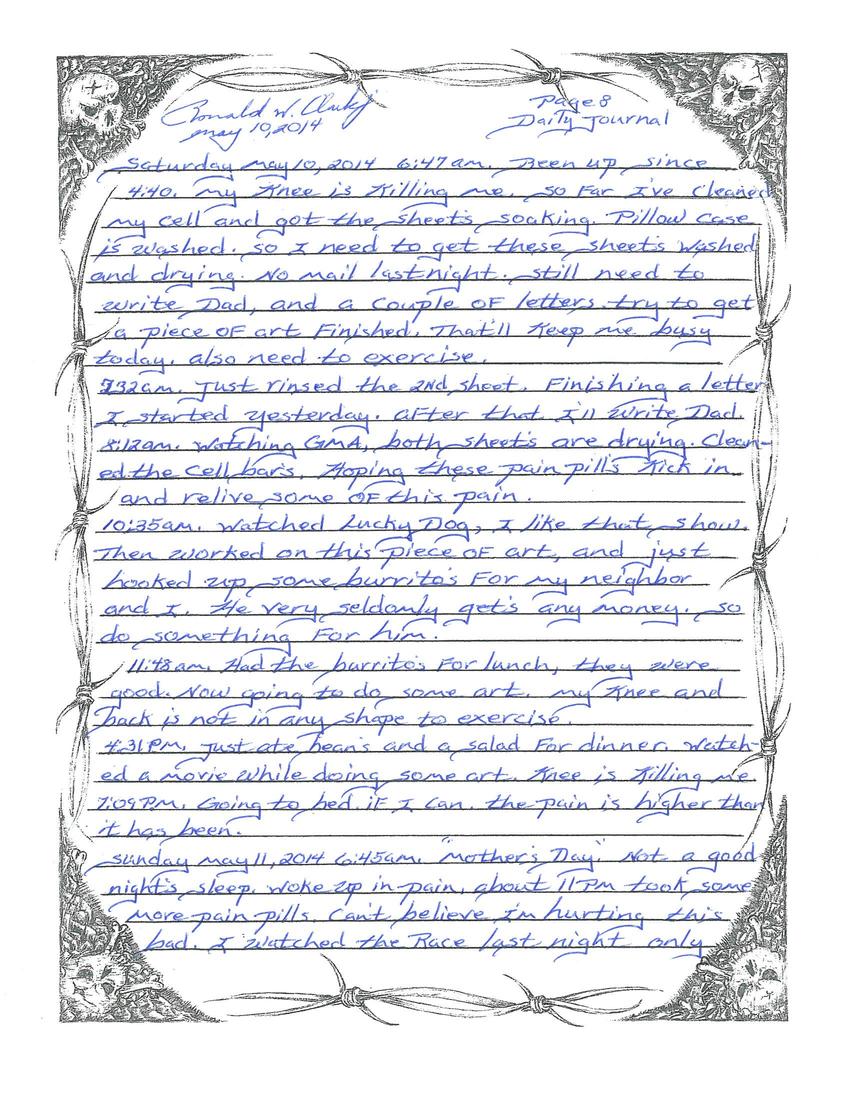 Ronald W. Clark Jr
May 10, 2014
Page 8
Daily Journal
Saturday May 10, 2014 6:47am. Been up since
4:40. My Knee is Killing me. So Far I've cleaned
my cell and got the sheet's soaking. Pillow case
is washed. So I need to get these sheet's washed
and drying. No mail last night. Still need to
write Dad, and a couple of letters. try to get
a piece of art Finished. That'll Keep me busy
today. also need to exercise.
7:32am. Just rinsed the 2nd sheet. Finishing a letter
I started yesterday. after that I'll write Dad.
8:12am. Watching GMA, both sheet's are drying. Clean-
ed the cell bar's. Hoping these pain pill's Kick in
and relive some of this pain.
10:35am. Watched Lucky Dog, I like that show.
Then worked on this piece of art, and just
hooked up some burrito's For my neighbor
and I. He very seldomly get's any money. So
do something For him.
11:48am. Had the burrito's For lunch, they were
good. Now going to do some art. My Knee and
back is not in any shape to exercise.
4:31PM. Just ate bean's and a salad For dinner. Watch-
ed a movie while doing some art. Knee is Killing me
7:09PM. Going to bed. iF I can. the pain is higher than
it has been.
Sunday May 11, 2014 6:45am. "Mother's Day." Not a good
night's sleep. Woke up in pain, about 11PM took some
More pain pills. Can't believe I'm hurting this
bad. I watched the Race last night only